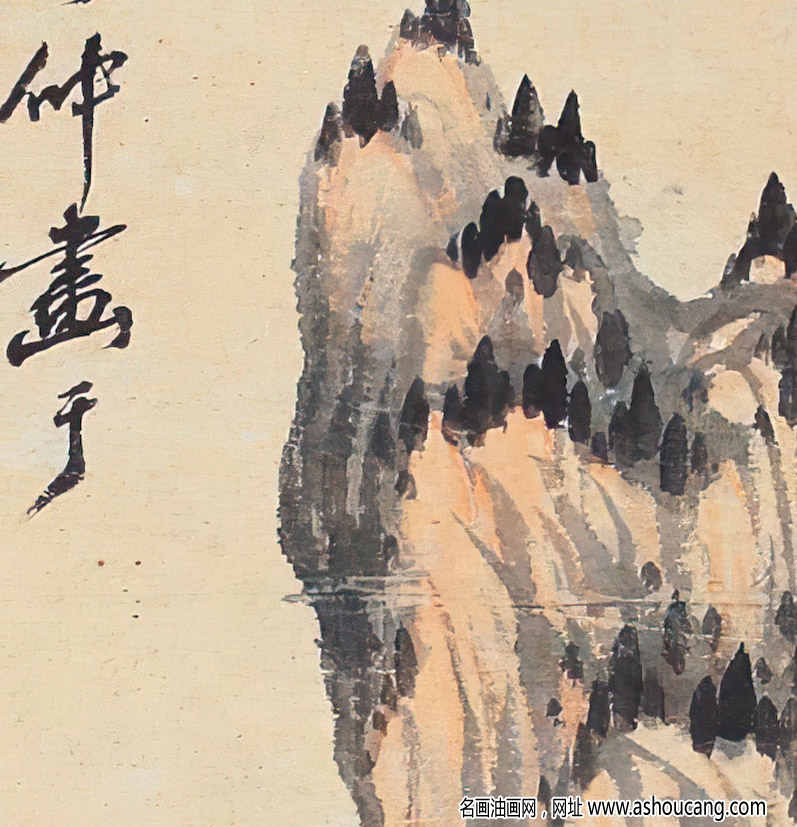 仲
畫
于
名画油画网，网址 www.ashoucang.com